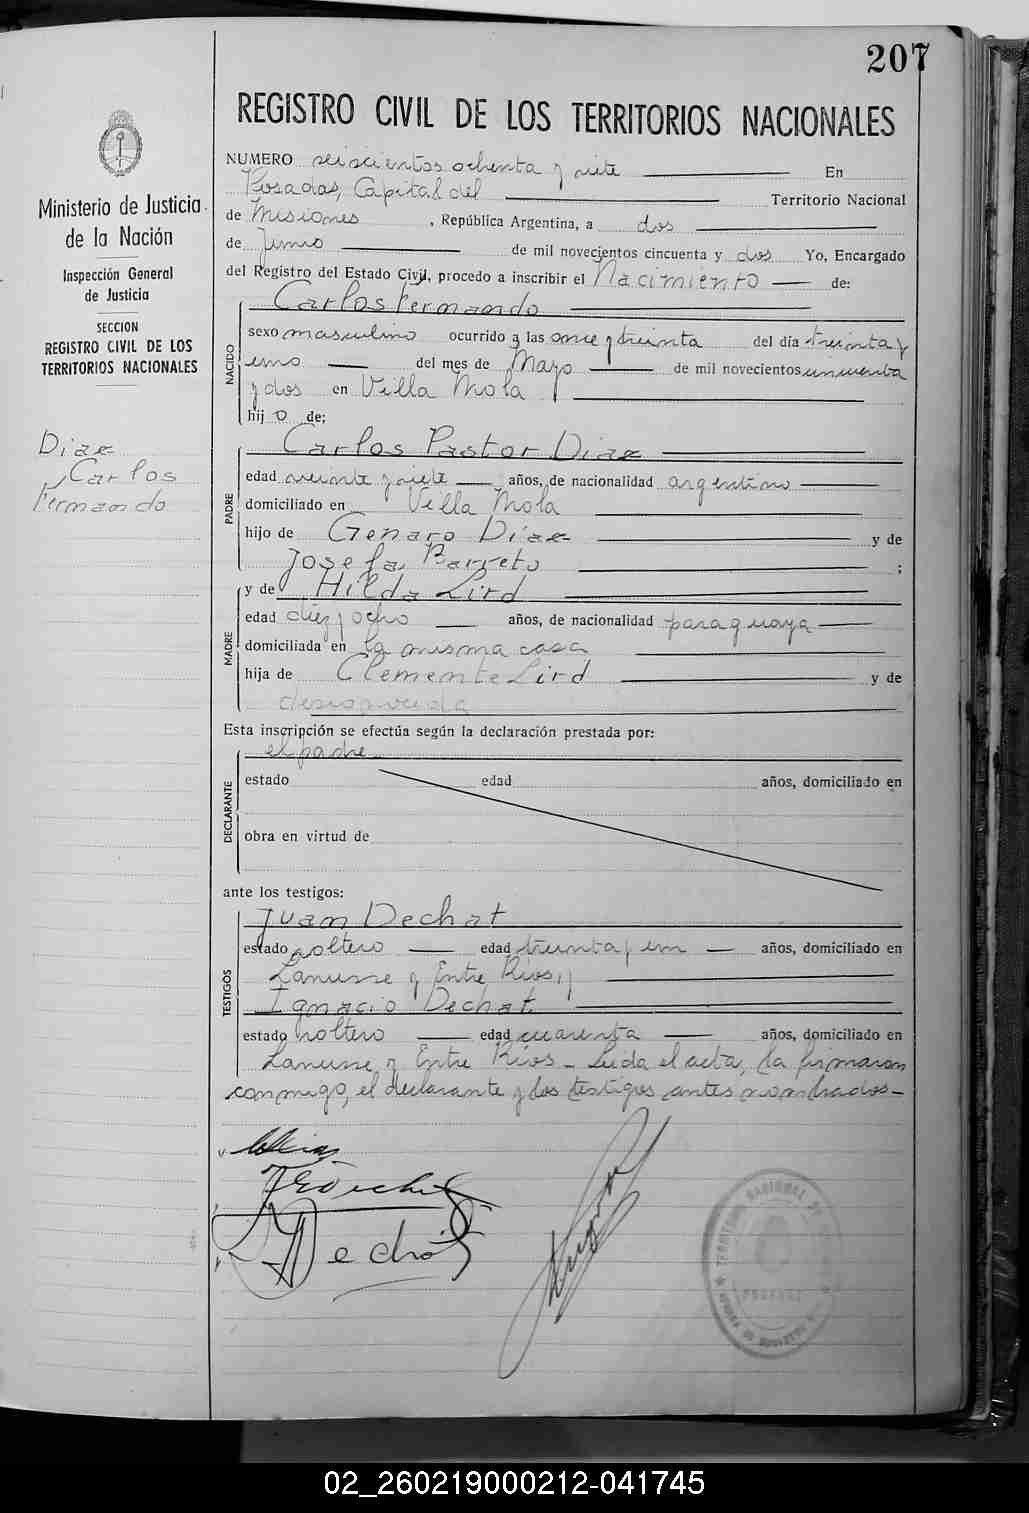 207
REGISTRO CIVIL DE LOS TERRITORIOS NACIONALES
Ministerio de Justicia
de la Nación
Inspección General
de Justicia
SECCION
REGISTRO CIVIL DE LOS
TERRITORIOS NACIONALES
Diaz
Carlos
Fernando
NUMERO seiscientos ochenta y siete En
Posadas, Capital del Territorio Nacional
de Misiones , República Argentina, a dos
de Junio de mil novecientos cincuenta y dos Yo, Encargado
del Registro del Estado Civil, procedo a inscribir el Nacimiento de:
Carlos Fernando
NACIDO
sexo masculino ocurrido a las once y treinta del día treinta y
uno del mes de Mayo de mil novecientos cincuenta
y dos en Villa Mola
hij o de:
Carlos Pastor Diaz
PADRE
edad veinte y siete años, de nacionalidad argentino
domiciliado en Villa Mola
hijo de Genaro Diaz y de
Josefa Barreto ;
y de Hilda Lird
MADRE
edad diez y ocho años, de nacionalidad paraguaya
domiciliada en la misma casa
hija de Clemente Lird y de
Esta inscripción se efectúa según la declaración prestada por:
el padre
DECLARANTE
estado edad años, domiciliado en
obra en virtud de
ante los testigos:
Juan Dechat
TESTIGOS
estado soltero edad treinta y un años, domiciliado en
Lanusse y Entre Rios, y
Ignacio Dechat
estado soltero edad cuarenta años, domiciliado en
Lanusse y Entre Rios - Leida el acta, la firmaron
conmigo, el declarante y los testigos antes nombrados -
02_260219000212-041745